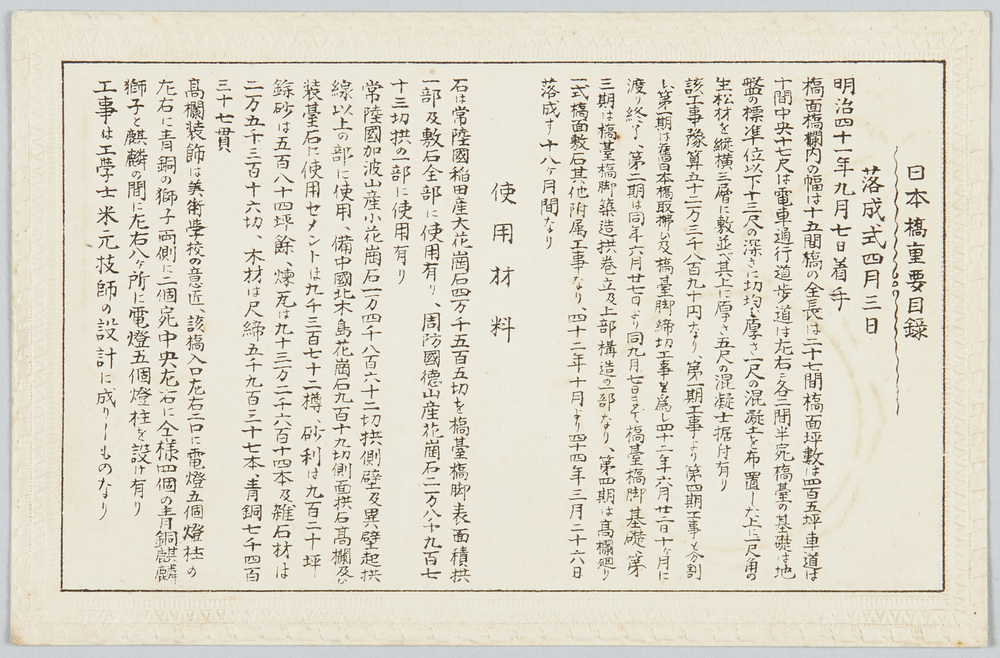 日本橋重要目録
落成式四月三日
明治四十一年九月七日着手
橋面橋欄内の幅は十五間橋の全長は二十七間橋面坪数は四百五坪車道は
十間中央十七尺は電車通行道歩道は左右に各二間半宛橋臺の基礎は地
盤の標準位以下十三尺の深さに切均し厚さ一尺の混凝土を布置した上に一尺角の
生松材を縦横三層に敷並べ其上に厚さ五尺の混凝土据付有り
該工事豫算五十二万三千八百九十円なり、第一期工事より第四期工事と分割
し、第一期は舊日本橋取拂い及橋臺脚締切工事を為し四十二年六月廿二日十ヶ月に
渡り終了、第二期は同年六月廿七日より同九月七日にて橋臺橋脚基礎、第
三期は橋臺橋脚築造拱巻立及上部構造の一部なり、第四期は高欄廻り
一式橋面敷石其他附属工事なり、四十二年十月より四十四年三月二十六日
落成す十八ヶ月間なり
使用材料
石は常陸國稲田産大花崗石四万千五百五切を橋臺橋脚表面積拱
一部及敷石全部に使用有り、周防國徳山産花崗石二万八千九百七
十三切拱の一部に使用有り
常陸國加波山産小花崗石一万四千八百六十二切拱側壁及異壁起拱
線以上の部に使用、備中國北木島花崗石九百十九切側面拱石高欄及び
装臺石に使用セメントは九千三百七十二樽、砂利は九百二十坪
餘砂は五百八十四坪餘、煉瓦は九十三万二千六百十四本及雑石材は
二万五千三百十六切、木材は尺締五千九百三十七本、青銅七千四百
三十七貫、
高欄装飾は美術學校の意匠、該橋入口左右二口に電燈五個燈柱の
左右に青銅の獅子両側に二個宛中央左右に仝様四個の青銅麒麟
獅子と麒麟の間に左右八ヶ所に電燈五個燈柱を設け有り
工事は工學士米元技師の設計に成りしものなり